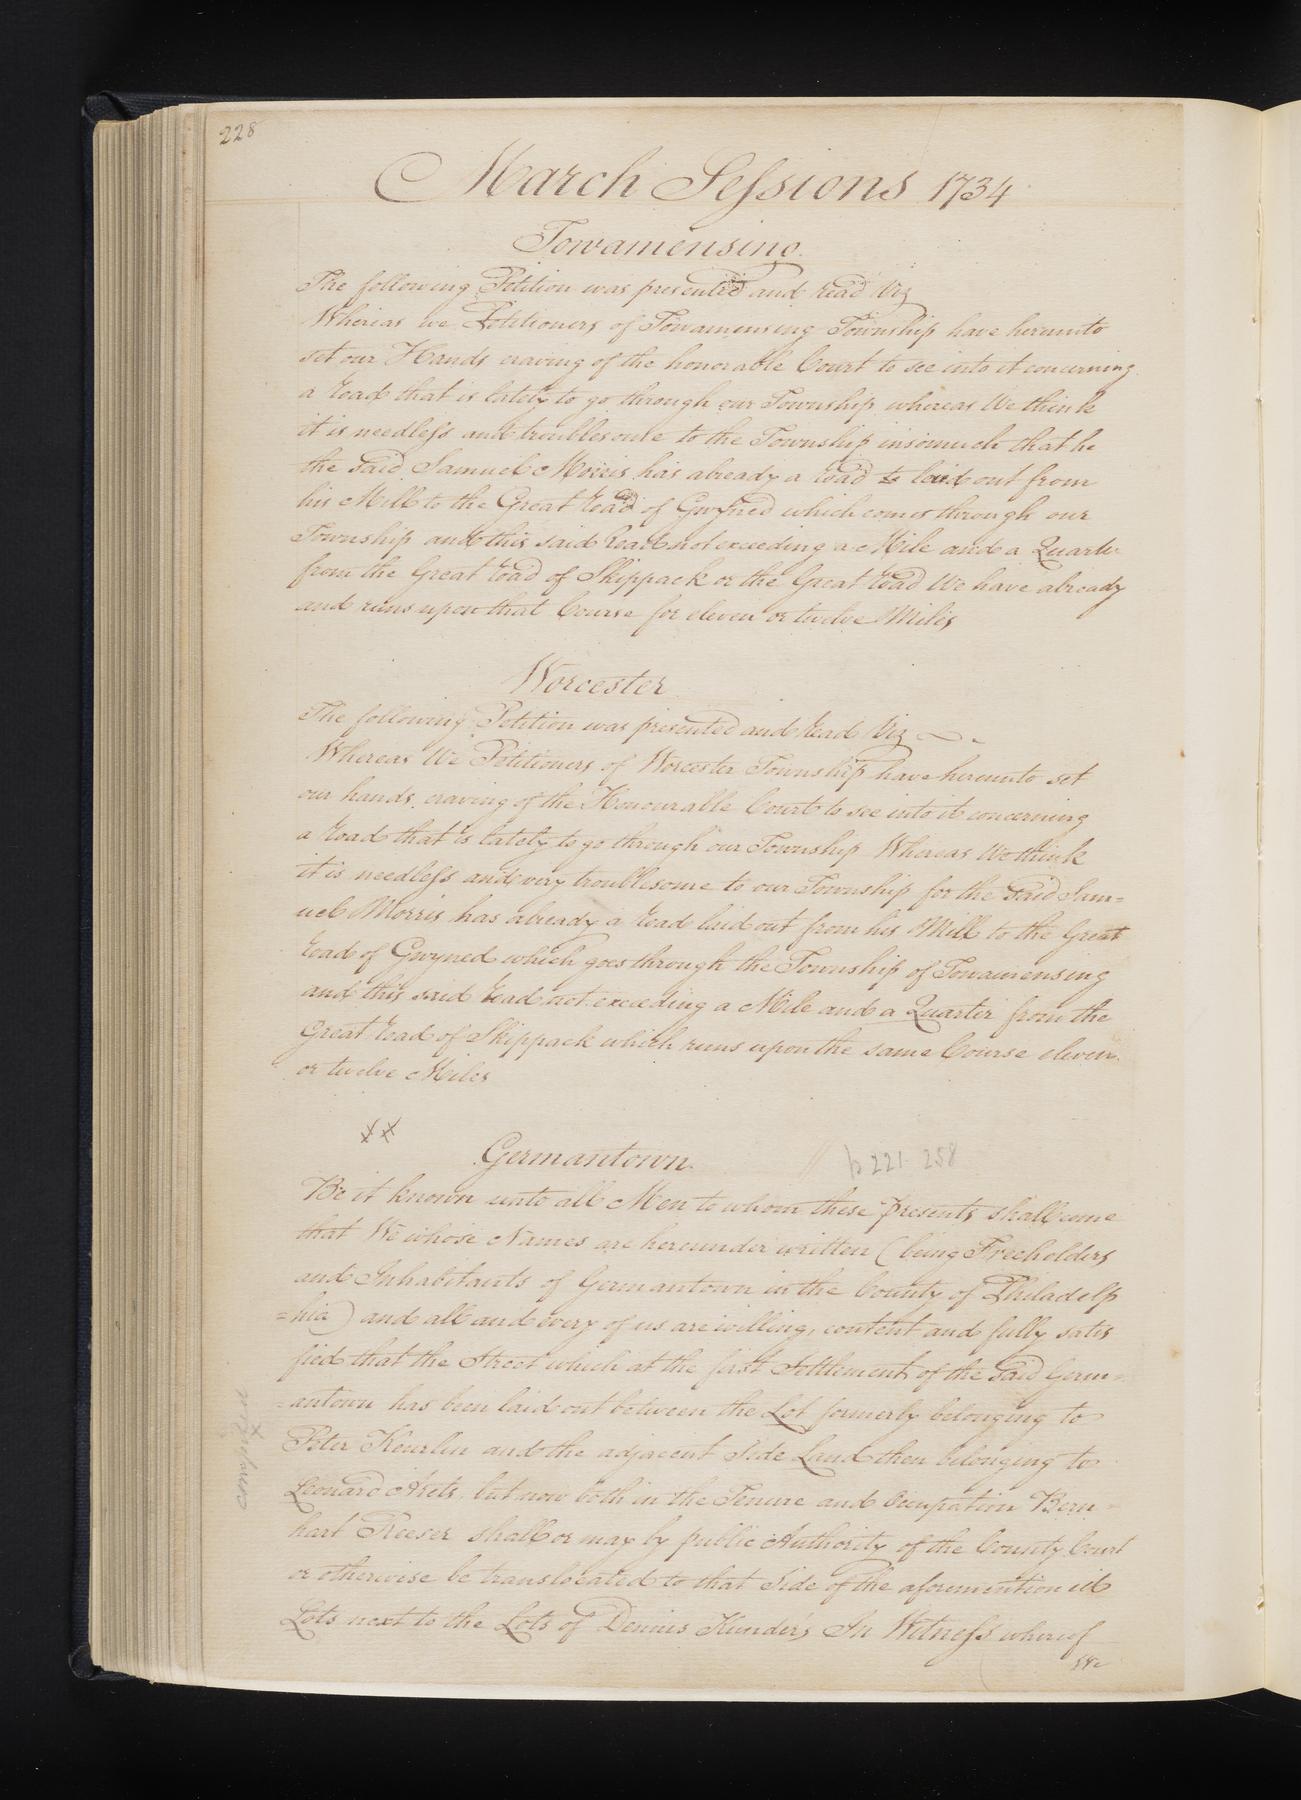 228
March Sessions 1734
Towamensing.
The following Petition was presented and read Viz
Whereas we Petitioners of Towamensing Township have hereunto
set our Hands craving of the honorable Court to see into it concerning
a road that is lately to go through our Township whereas We think
it is needless and troublesome to the Township insomuch that he
the said Samuel Morris has already a road to laid out from
his Mill to the Great road of Gwyned which comes through our
Township and this said road not exceeding a Mile and a Quarter
from the Great road of Skippack or the Great road We have already
and runs upon that Course for eleven or twelve Miles
Worcester
The following Petition was presented and read Viz
Whereas We Petitioners of Worcester Township have hereunto set
our hands craving of the Honourable Court to see into it concerning
a road that is lately to go through our Township Whereas We think
it is needless and very troublesome to our Township for the said Sam=
uel Morris has already a road laid out from his Mill to the Great
road of Gwyned which goes through the Township of Towamensing
and this said road not exceeding a Mile and a Quarter from the
Great road of Skippack which runs upon the same Course eleven
or twelve Miles
xx
Germantown. // p 221. 258
Be it known unto all Men to whom these presents shall come
that We whose Names are hereunder written (being Freeholders
and Inhabitants of Germantown in the County of Philadelp
=hia) and all and every of us are willing, content and fully satis
fied that the Street which at the first Settlement of the said Germ=
=antown has been laid out between the Lot formerly belonging to
Peter Keurlin and the adjacent Side Land then belonging to
Leonard Arets but now both in the Tenure and Occupation Bern=
hart Reeser shall or may by public Authority of the County Court
or otherwise be translocated to that Side of the aforemention ed
Lots next to the Lots of Dennis Kunders In Witness whereof
&c
compared
x